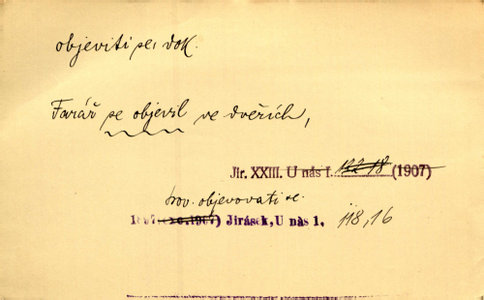 objeviti se, dok.
Farář se objevil ve dveřích,
Jir. XXIII. U nás I. 122 18 (1907)
srov. objevovati se
1897 (1907) Jirásek, U nás 1. 118, 16